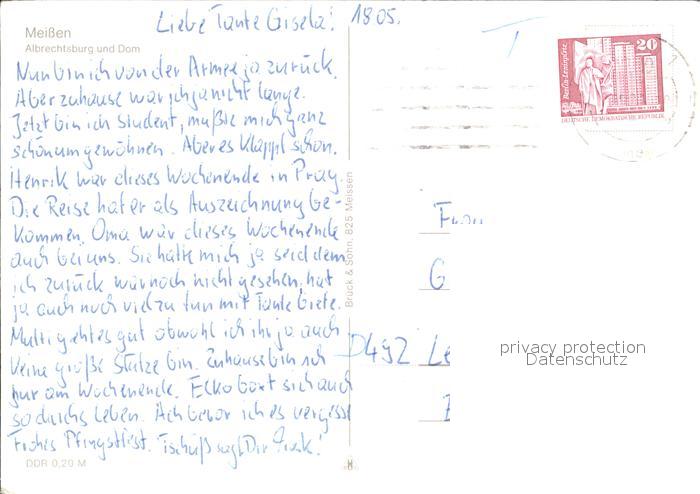 Meißen
Albrechtsburg und Dom
Liebe Tante Gisela! 18.05.
Nun bin ich von der Armee ja zurück.
Aber zuhause war ich ja nicht lange.
Jetzt bin ich Student, mußte mich ganz
schön umgewöhnen. Aber es klappt schon.
Henrik war dieses Wochenende in Prag.
Die Reise hat er als Auszeichnung be-
kommen. Oma war dieses Wochenende
auch bei uns. Sie hatte mich ja seid dem
ich zurück war noch nicht gesehen, hat
ja auch noch viel zu tun mit Tante Grete.
Mutti geht es gut obwohl ich ihr ja auch
keine große Stütze bin. Zuhause bin ich
nur am Wochenende. Ecko boxt sich auch
so durchs Leben. Ach bevor ich es vergesse
Frohes Pfingstfest. Tschüß sagt Dir Frank!
DDR 0,20 M
Brück & Sohn, 825 Meissen
Berlin-Leninplatz
20
DEUTSCHE DEMOKRATISCHE REPUBLIK
Frau
G
D492 Le
privacy protection
Datenschutz